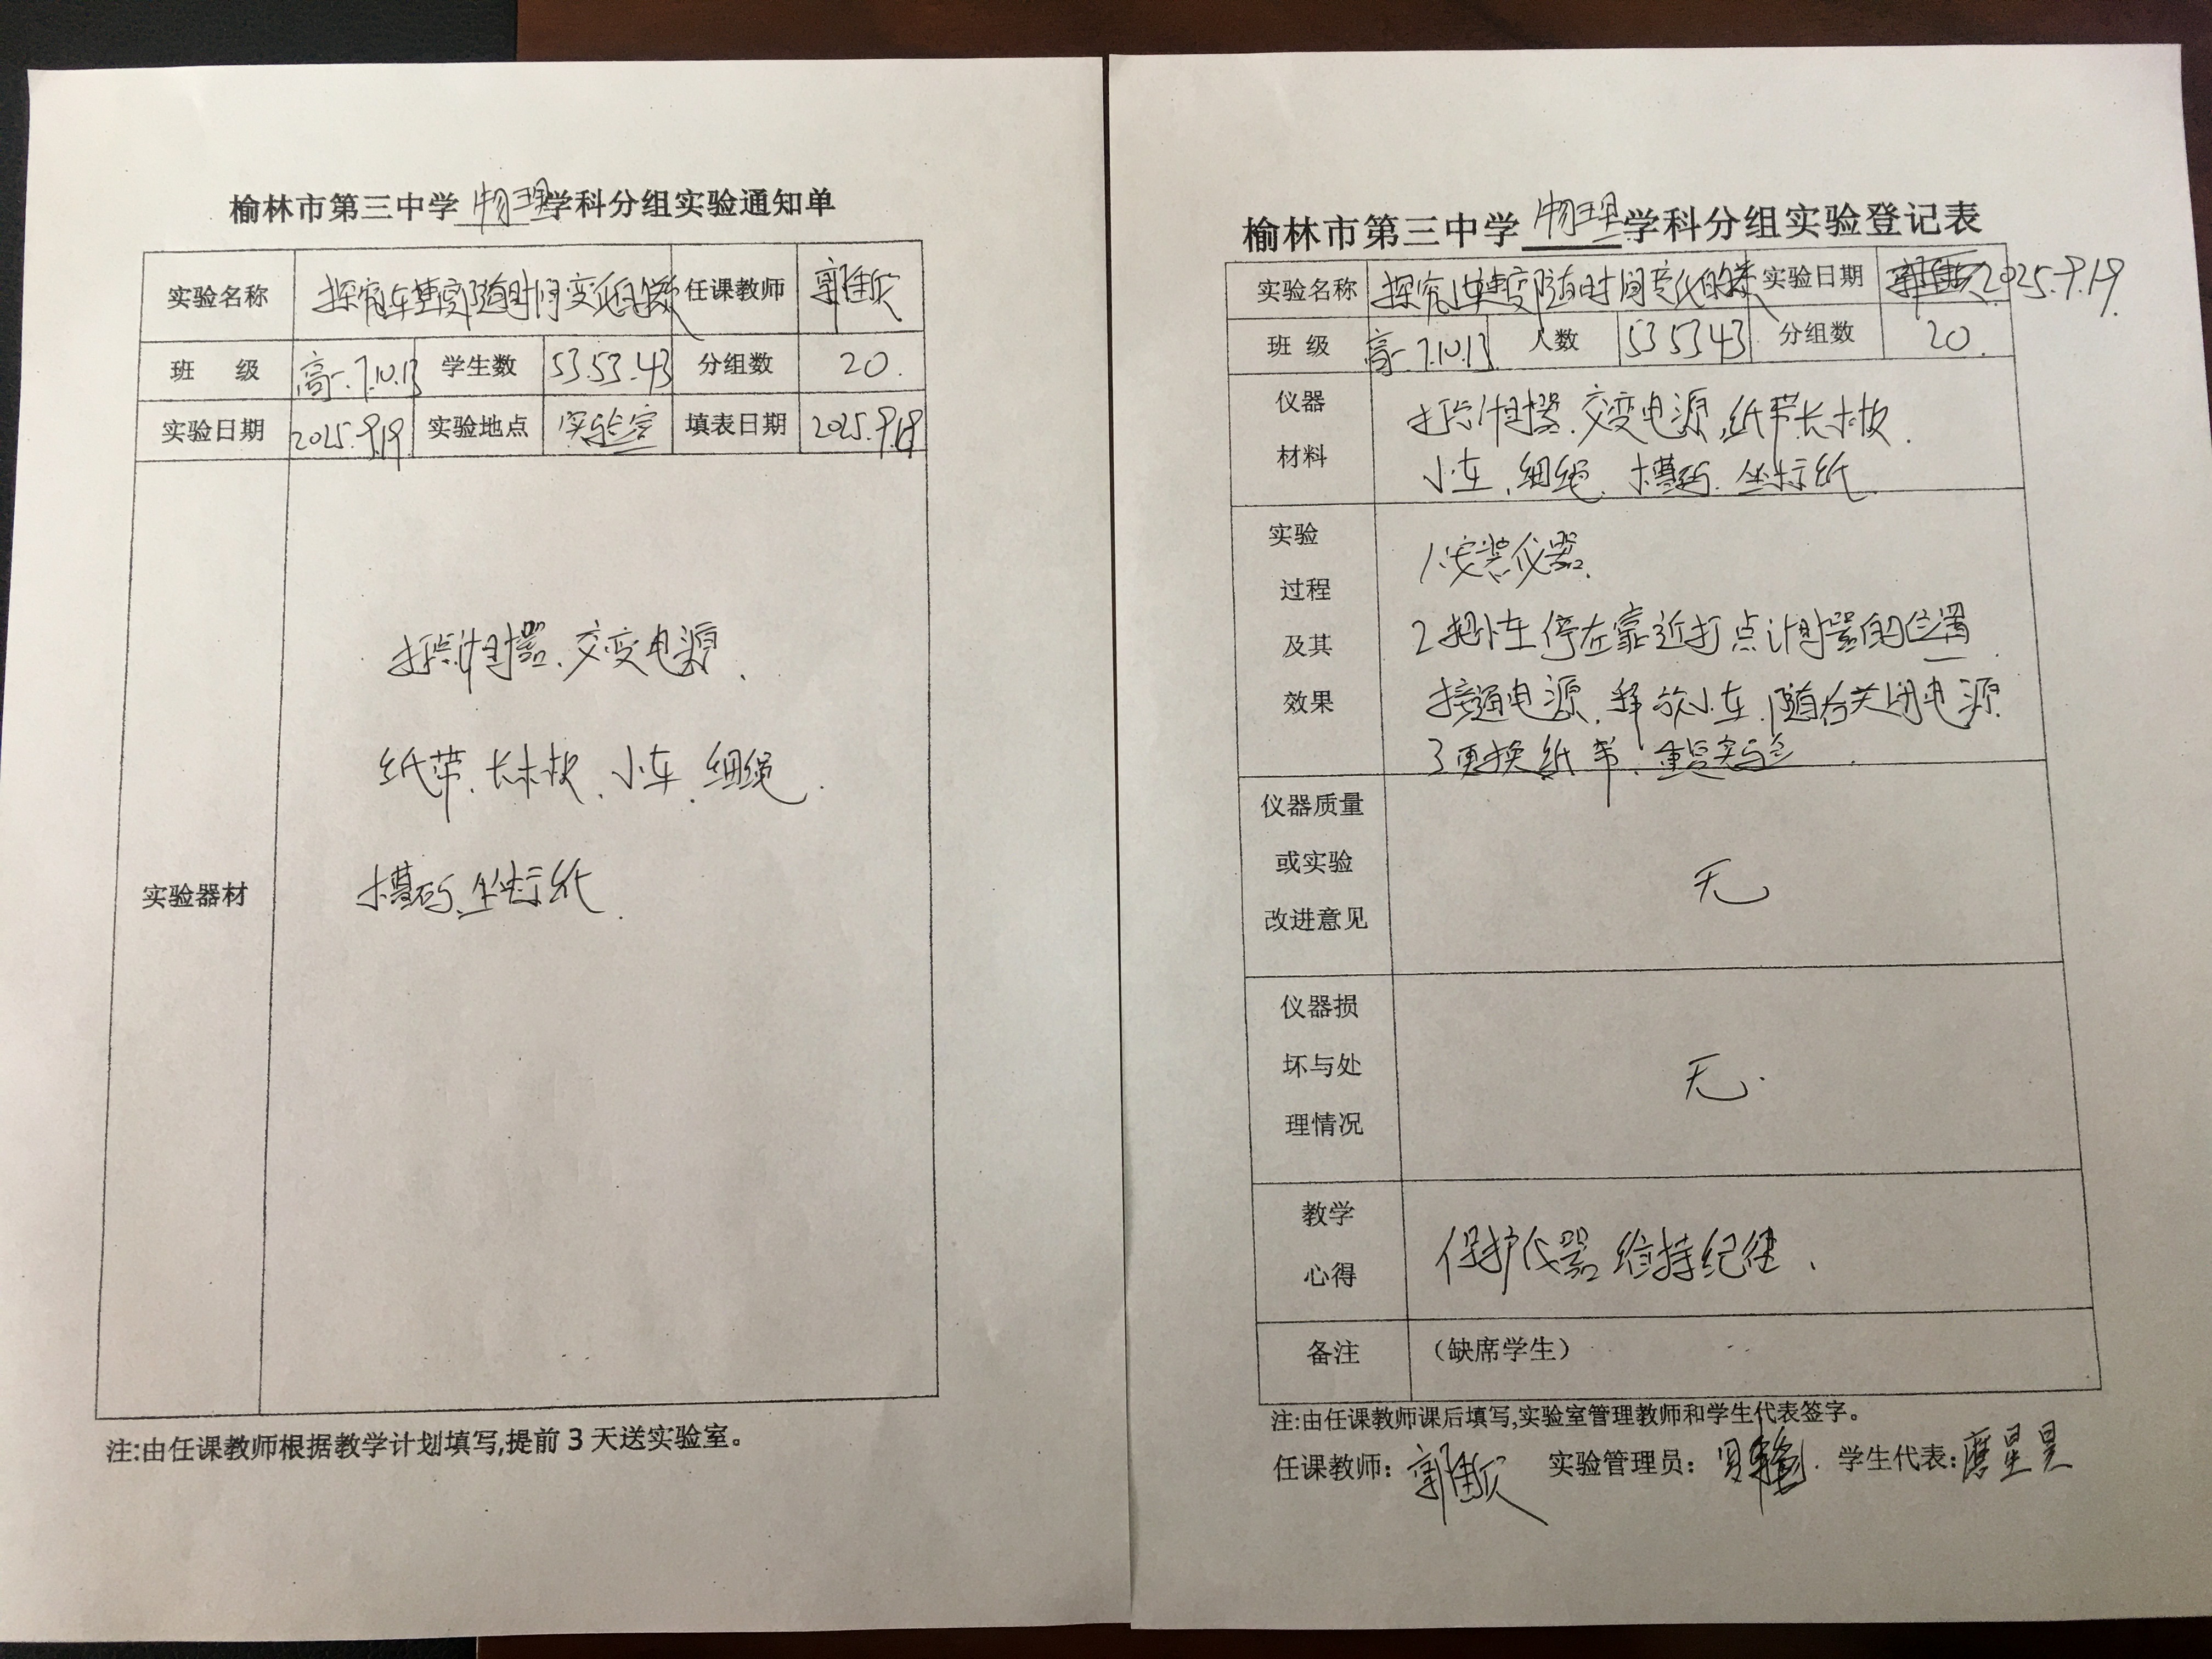 榆林市第三中学 物理 学科分组实验通知单
实验名称 探究小车速度随时间变化的规律 任课教师 郭佳欣
班 级 高一.7.10.13 学生数 53.53.43 分组数 20.
实验日期 2025.9.19 实验地点 实验室 填表日期 2025.9.19
实验器材
打点计时器、交变电源、
纸带、长木板、小车、细绳、
槽码、坐标纸、
注:由任课教师根据教学计划填写,提前 3 天送实验室。
榆林市第三中学 物理 学科分组实验登记表
实验名称 探究小车速度随时间变化的规律 实验日期 2025.9.19.
班 级 高一.7.10.13 人数 53 53 43 分组数 20.
仪器
材料
打点计时器、交变电源,纸带、长木板、
小车、细绳、槽码、坐标纸、
实验
过程
及其
效果
1.安装仪器.
2 把小车停在靠近打点计时器的位置、
接通电源、释放小车、随后关闭电源.
3 更换纸带、重复实验.
仪器质量
或实验
改进意见
无
仪器损
坏与处
理情况
无.
教学
心得
保护仪器 维持纪律、
备注 (缺席学生)
注:由任课教师课后填写,实验室管理教师和学生代表签字。
任课教师: 郭佳欣 实验管理员: 学生代表: 星昊